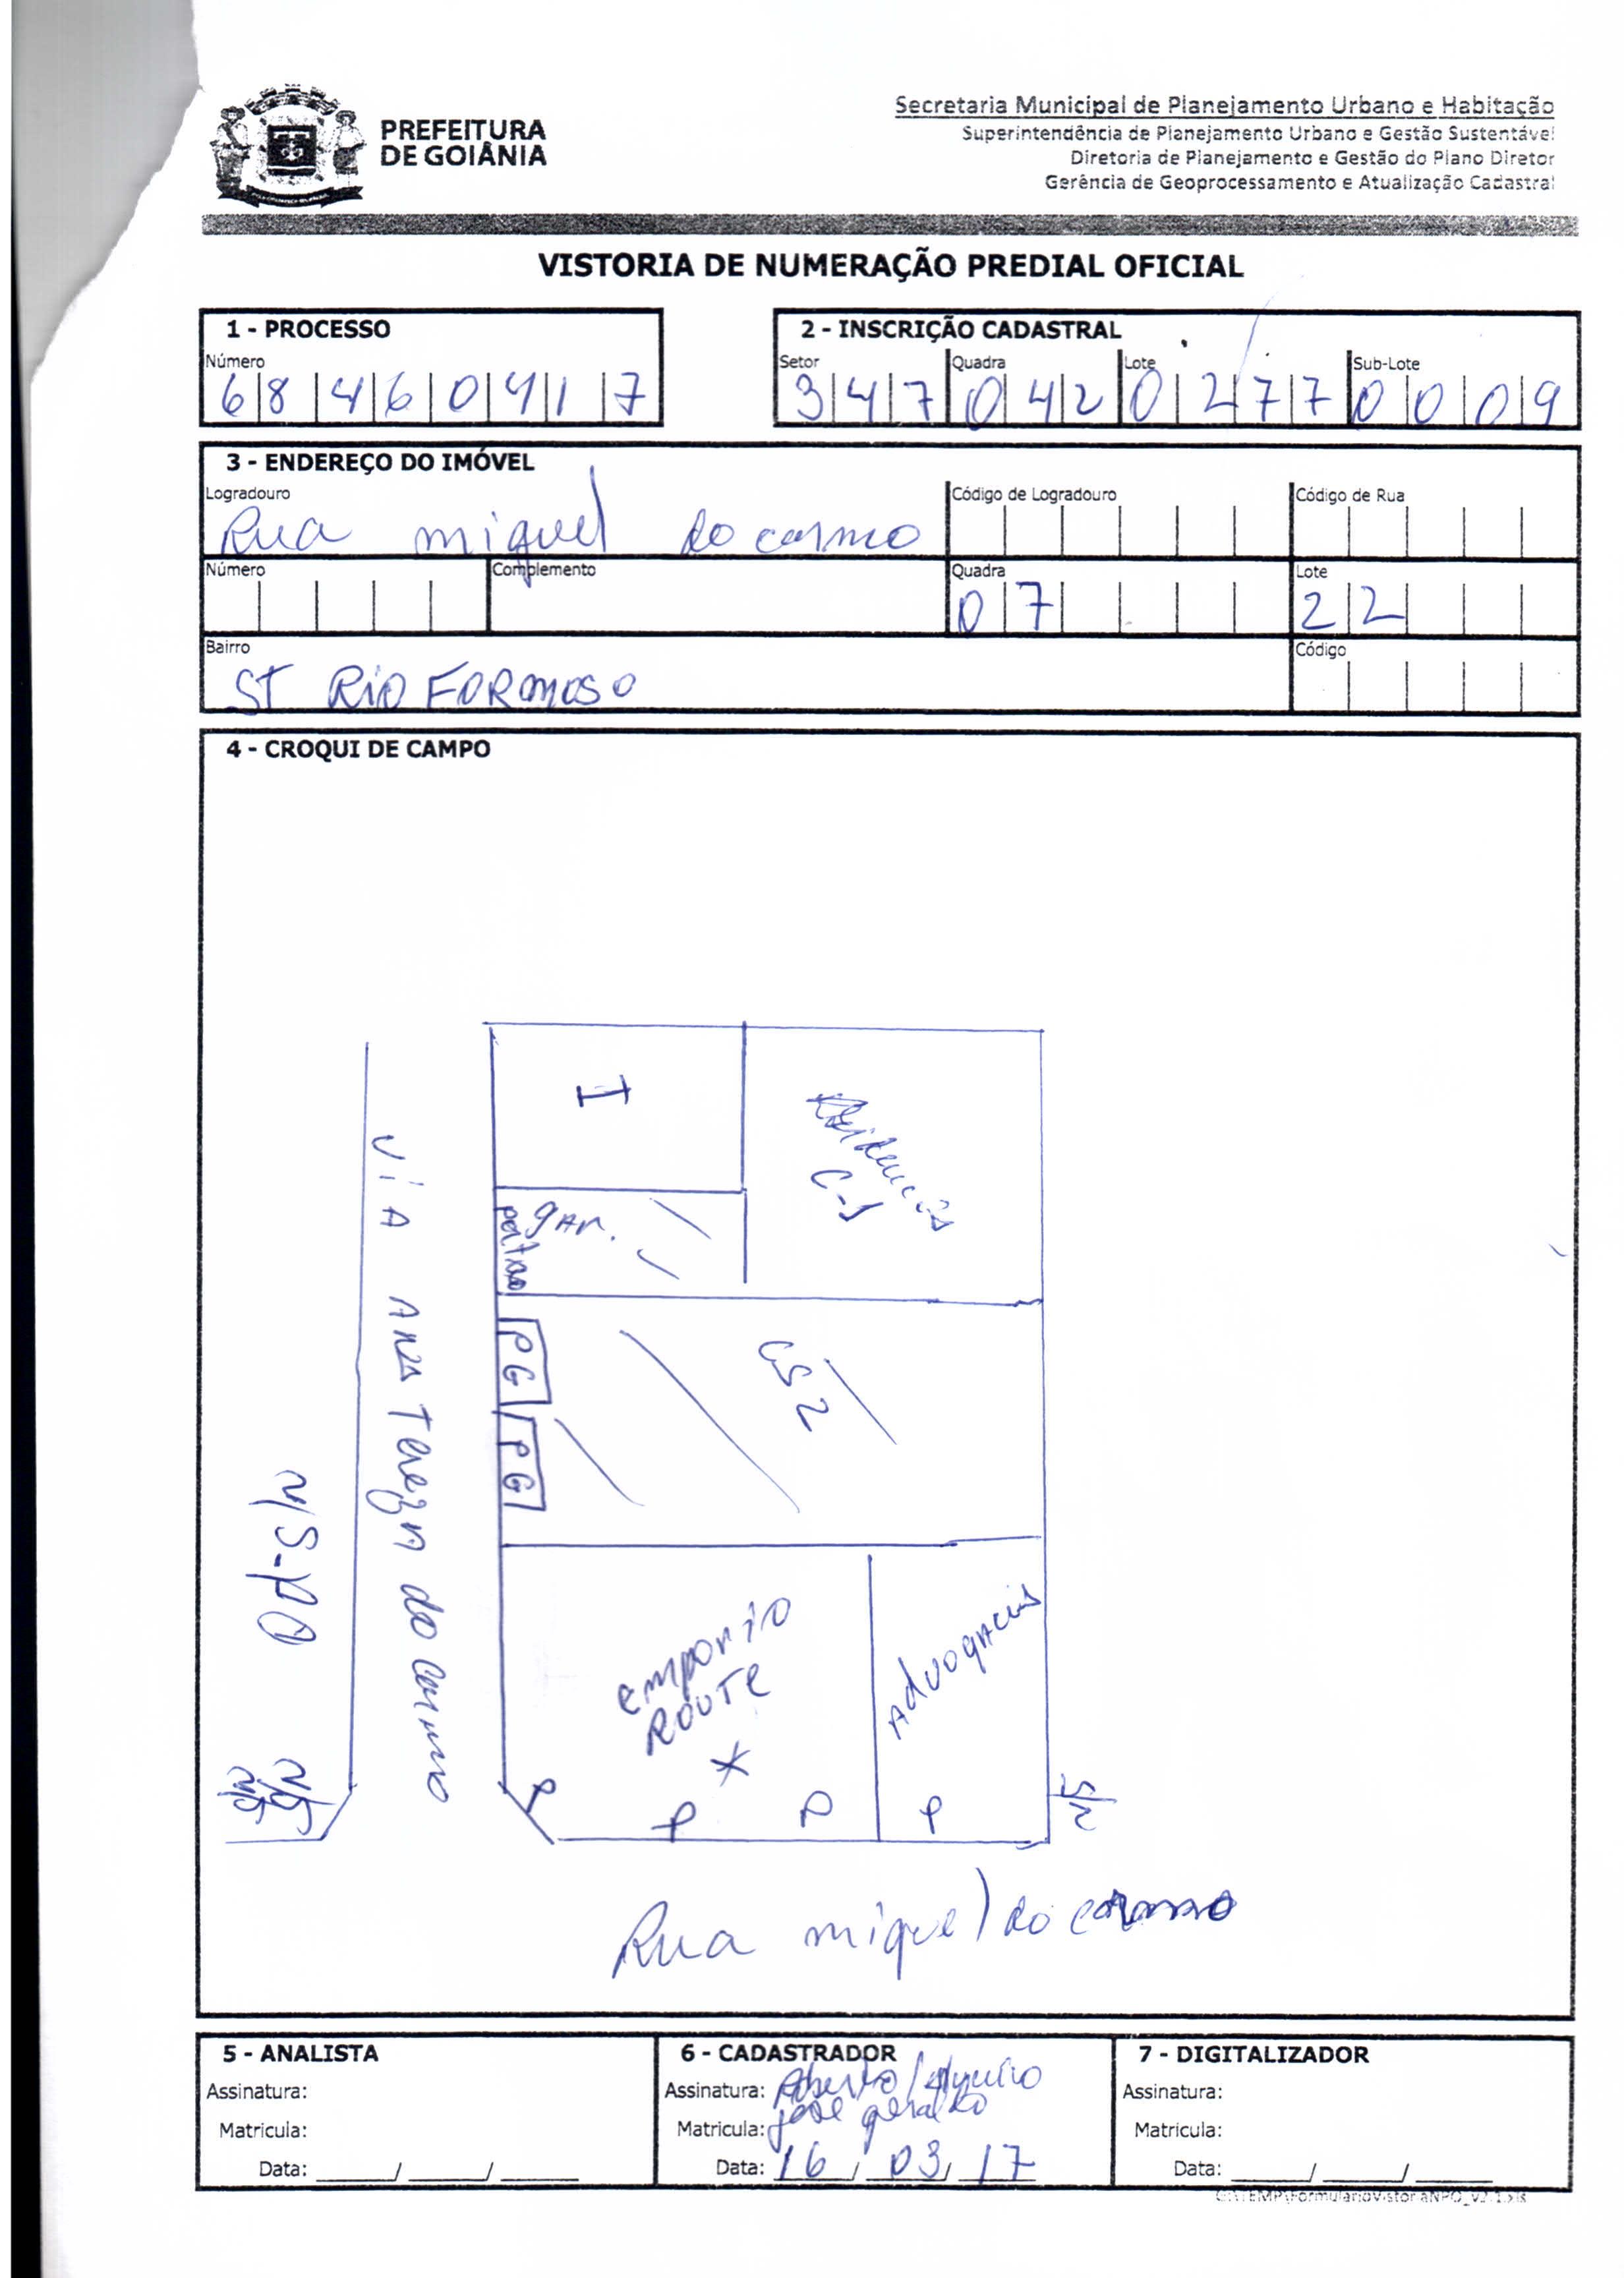 PREFEITURA
DE GOIÂNIA
Secretaria Municipal de Planejamento Urbano e Habitação
Superintendência de Planejamento Urbano e Gestão Sustentável
Diretoria de Planejamento e Gestão do Plano Diretor
Gerência de Geoprocessamento e Atualização Cadastral
VISTORIA DE NUMERAÇÃO PREDIAL OFICIAL
1 - PROCESSO
Número
68460417
2 - INSCRIÇÃO CADASTRAL
Setor Quadra Lote Sub-Lote
347 042 0277 0009
3 - ENDEREÇO DO IMÓVEL
Logradouro Código de Logradouro Código de Rua
Rua miguel do carmo
Número Complemento Quadra Lote
07 22
Bairro Código
ST RIO FORMOSO
4 - CROQUI DE CAMPO
I
Residencia
C-1
gar.
portao
PG
CS 2
PG
VIA ANA Tereza do carmo
emporio
ROUTE
Advogacia
P
P
P
P
S/N
Rua miguel do carmo
5 - ANALISTA
Assinatura:
Matricula:
Data: ____/____/____
6 - CADASTRADOR
Assinatura:
jose geraldo
Matricula:
Data: 16/03/17
7 - DIGITALIZADOR
Assinatura:
Matricula:
Data: ____/____/____